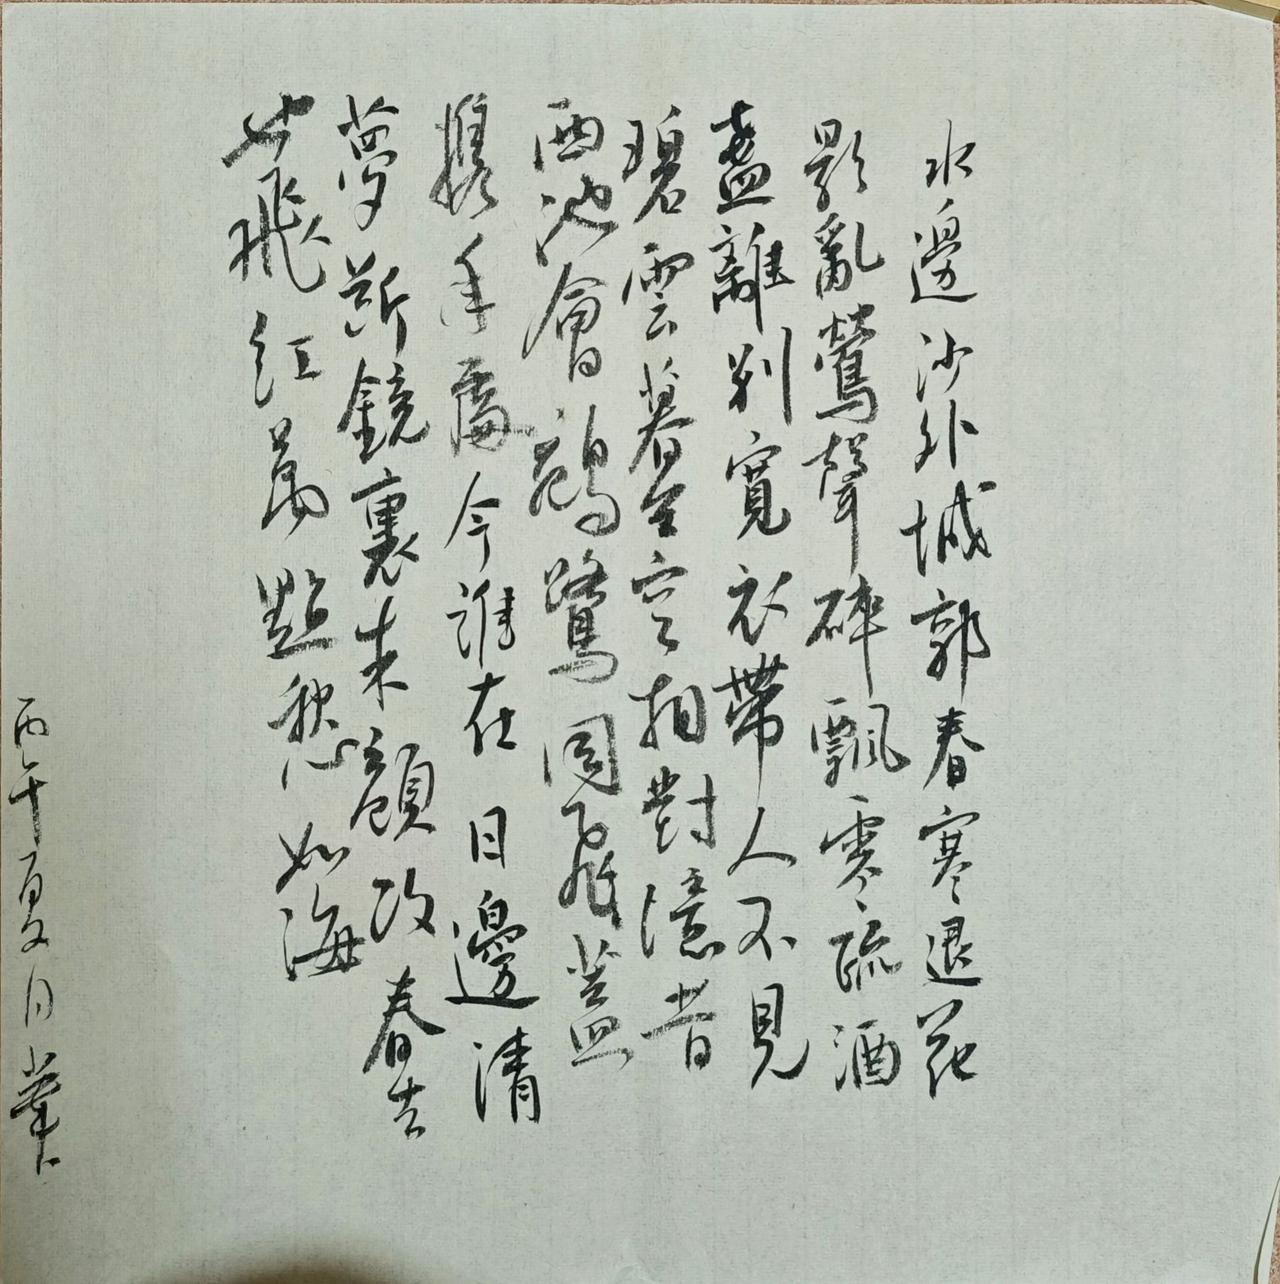 水邊沙外城郭春寒退花
影亂鶯聲碎飄零疏酒
盞離別寬衣帶人不見
碧雲暮合空相對憶昔
西池會鵷鷺同飛蓋
携手處今誰在日邊清
夢斷鏡裏朱顏改春去
也飛紅萬點愁如海
丙午夏月業